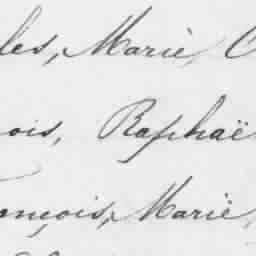 les, Marie, C
ois, Raphaë
ançois, Marie,